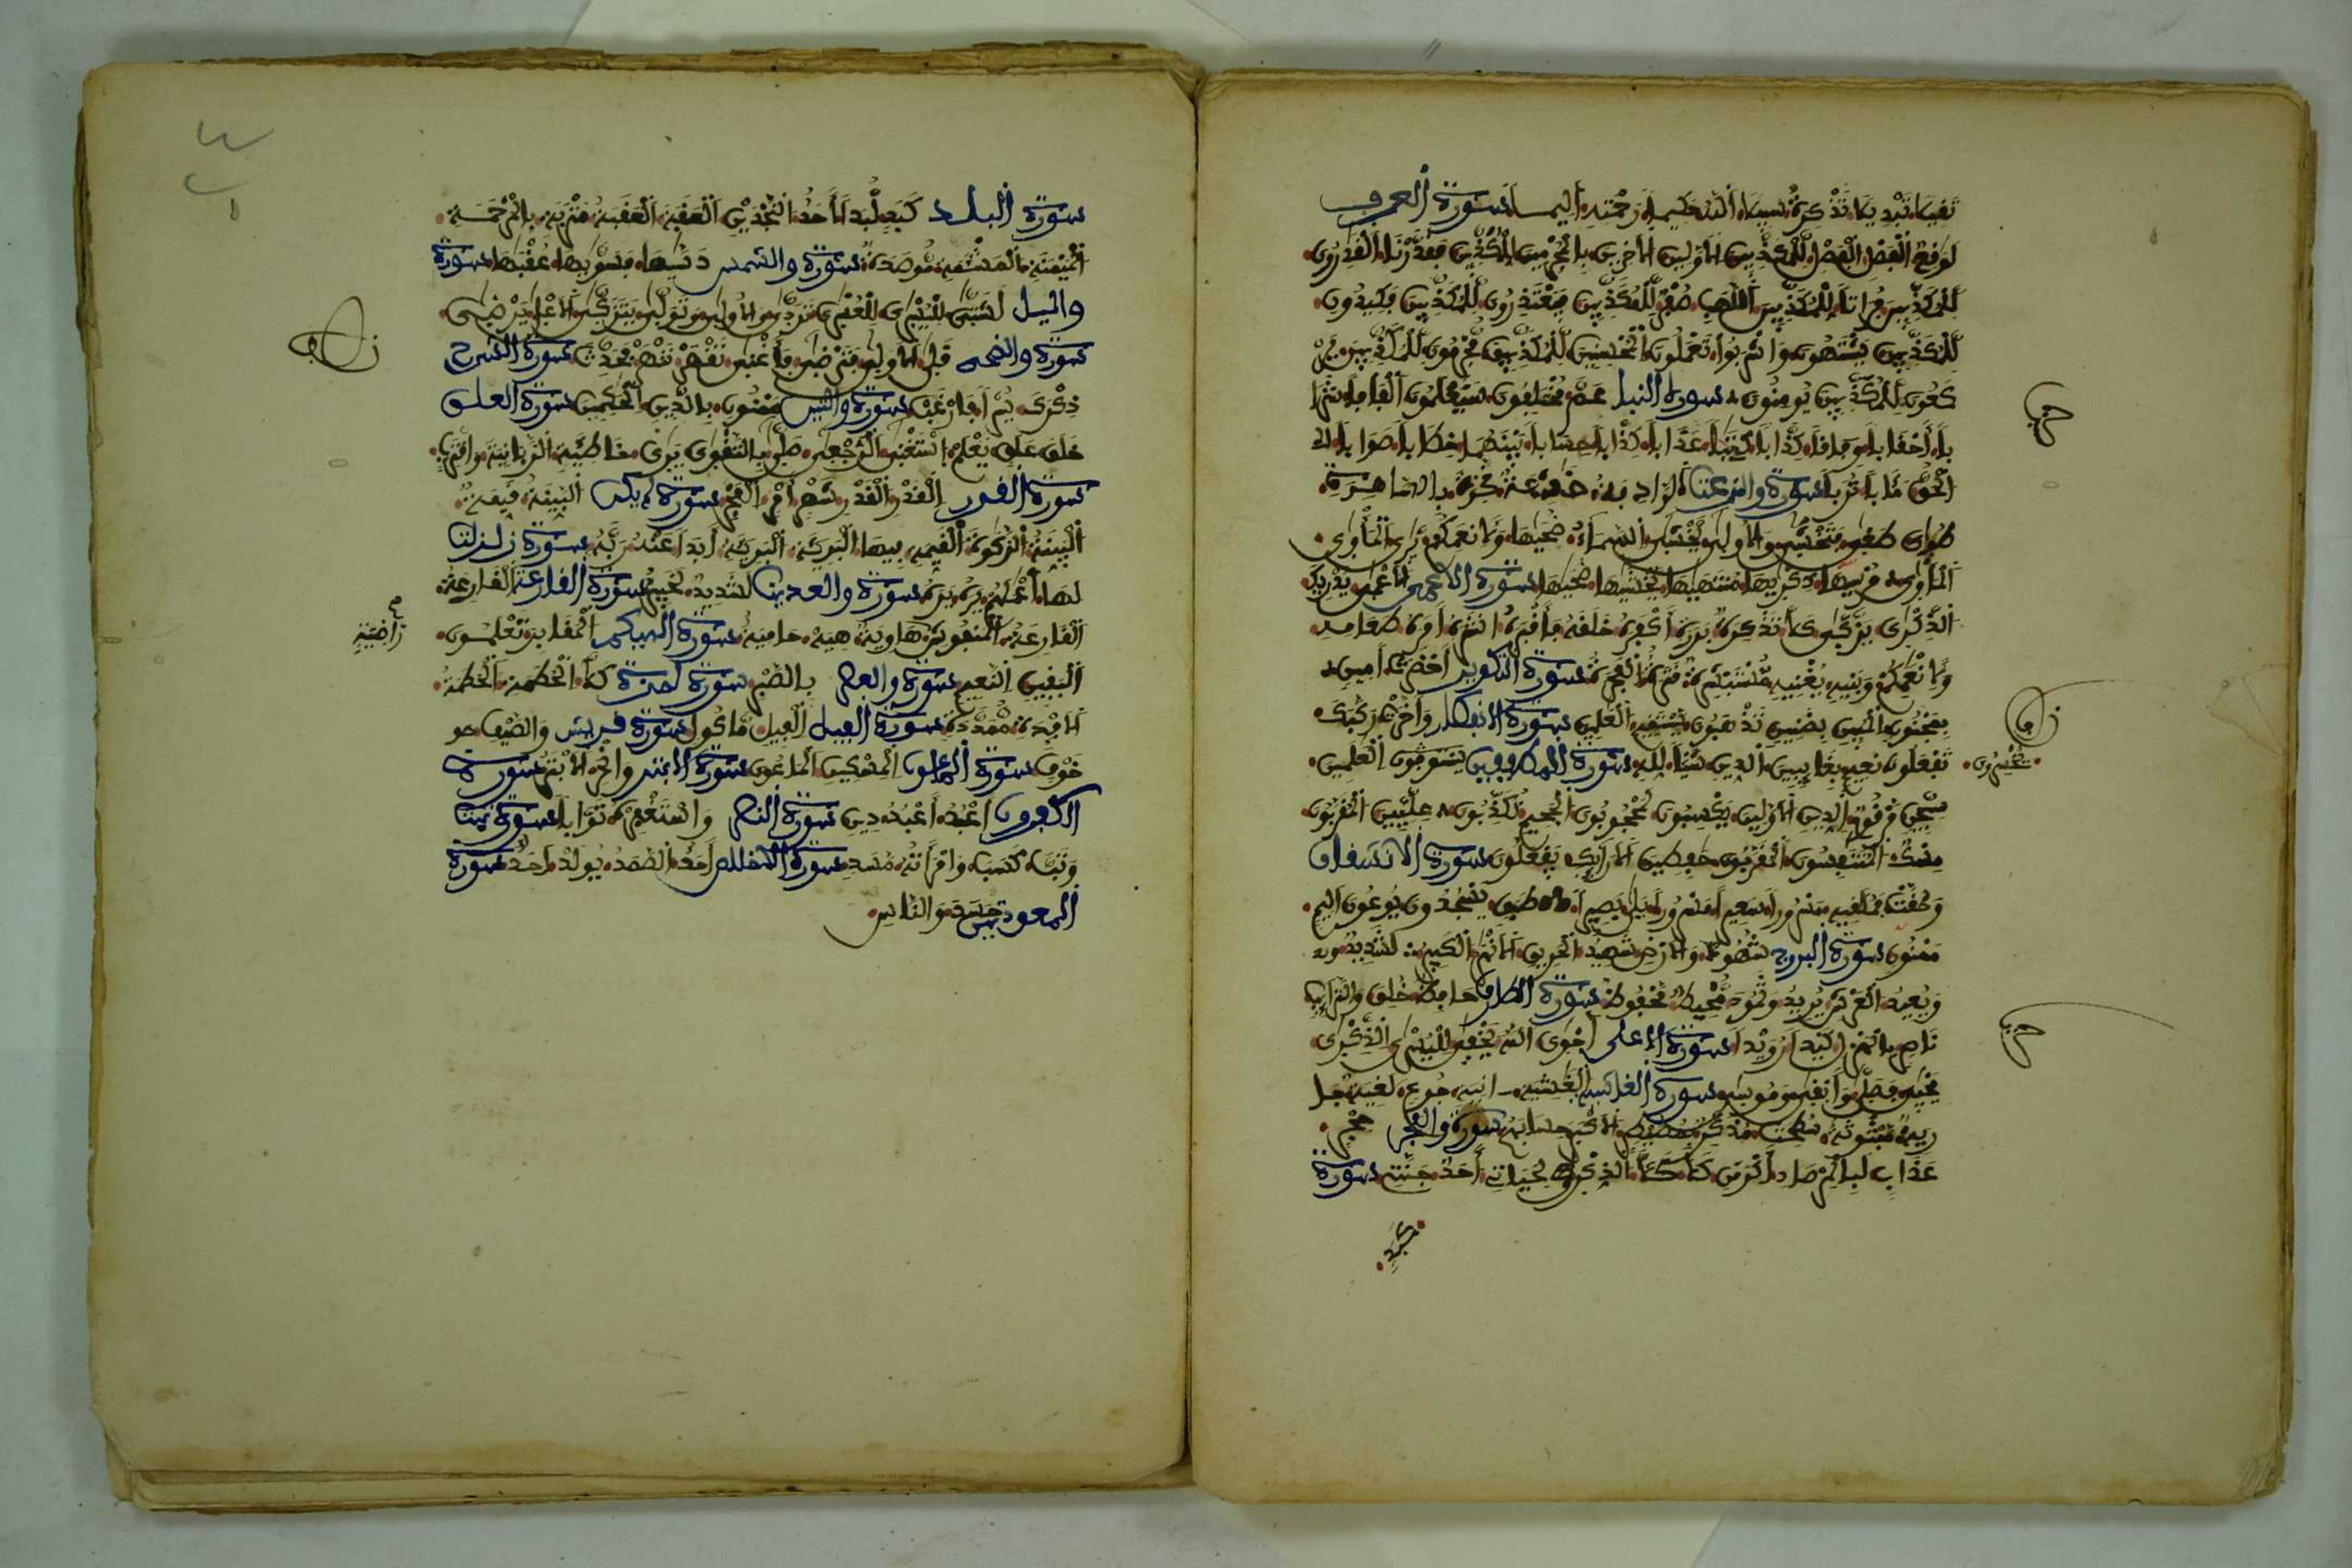 ثقيلا تبديلا تذكرة سبيلا الله حكيما رحمته أليما سورة العرف
لوقع الفصل الفصل للمكذبين الاولين الاخرين بالمجرمين للمكذبين فقدرنا القدرون
للمكذبين فراتا للمكذبين اللهب صفر للمكذبين فيعتذرون للمكذبين فكيدون
للمكذبين يشتهون واشربوا تعملون المحسنين للمكذبين مجرمون للمكذبين
كعون للمكذبين يومنون سورة النبا عم مختلفون سيعلمون
باً أحقابا وفاقا كذابا كتبا عذابا كذابا حسابا بينهما خطابا صوابا
الحق مئابا تربا سورة والنزعت الرادفة خشعة نخرة بالساهرة
طوى طغى فتخشى والاولى يخشى السماء ضحيها ولانعمكم يرى المأوى
المأوى مرسيها ذكريها منتهيها يخشيها ضحيها سورة الاعمى الاعمى يدريك
الذكرى يزكى كلا تذكرة بررة أكفره خلقه فأقبره أنشره أمره طعامه
ولانعمكم وبنيه يغنيه مستبشرة قترة الفجرة سورة التكوير أحضرت أمين
بمجنون المبين بضنين تذهبون يستقيم العلمين سورة الانفطار وأخرت ركبك
تفعلون نعيم بغايبين الدين شيئا لله سورة المطففين يستوفون العلمين
يخسرون
سجين مرقوم الدين الاولين يكسبون لمحجوبون الجحيم تكذبون عليين المقربون
مسك المتنفسون المقربون حفظين الارايك يفعلون سورة الانشقاق
وحقت فملقيه مسرورا سعيرا مسرورا بلى بصيرا طبق يسجدون يوعون اليم
ممنون سورة البروج شهود والارض شهيد الحريق الانهر الكبير لشديد
ويعيد العرش يريد وثمود محيط محفوظ سورة الطارق حافظ خلق والترايب
ناصر بالهزل كيدا رويدا سورة الاعلى أحوى الله يخفى لليسرى الذكرى
يحيى فصلى وأبقى وموسى سورة الغاشية الغشية ـانية جوع لغية جا
رية مبثوثة سطحت مذكر بمصيطر الاكبر حسابهم سورة والفجر حجر
عذاب لبالمرصاد أكرمن كلا كلا الذكرى لحياتي أحد جنتي سورة
كبد
سورة البلد كبد لبدا أحد النجدين العقبة العقبة متربة بالمرحمة
الميمنة المشئمة موصدة سورة والشمس دسيها فسويها عقبها سورة
واليل لشتى لليسرى للعسرى تردى والاولى وتولى يتزكى الاعلى يرضى
سورة والضحى قلى الاولى فترضى فأغنى تقهر تنهر فحدث سورة الشرح
ذكرك يسرا فارغب سورة والتين ممنون بالدين الحكمين سورة العلق
خلق علق يعلم استغنى الرجعى صلى بالتقوى يرى خاطئة الزبانية واقترب
سورة القدر القدر القدر شهر أمر الفجر سورة لم يكن البينة قيمة
البينة الزكوة القيمة فيها البرية البرية أبدا عنه ربه سورة زلزلت
لها أعملهم يره يره سورة والعديت لشديد لخبير سورة القارعة القارعة
راضية
القارعة المنفوش هاوية هيه حامية سورة الهيكم المقابر تعلمون
اليقين النعيم سورة والعصر بالصبر سورة لمزة كلا الحطمة الحطمة
الافدة ممددة سورة الفيل الفيل مأكول سورة قريش والصيف
خوف سورة الماعون المسكين الماعون سورة الابتر وانحر الابتر سورة
الكفرون أعبد أعبد دين سورة النصر واستغفره توابا سورة تبت
وتب كسب وامرأته مسد سورة الاخلاص أحد الصمد يولد أحد سورة
المعوذتين حسد والناس